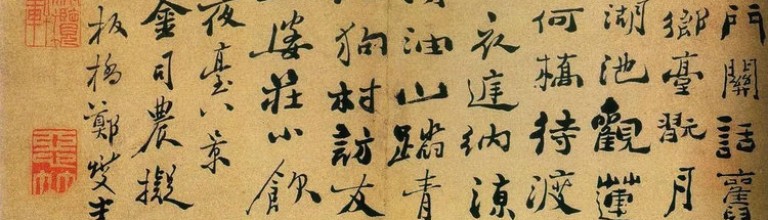 門關話舊
鄉臺翫月
湖池觀蓮
何橋待渡
衣庭納涼
油山踏青
狗村訪友
婆莊小飲
夜臺八景
金司農擬
板橋鄭燮書